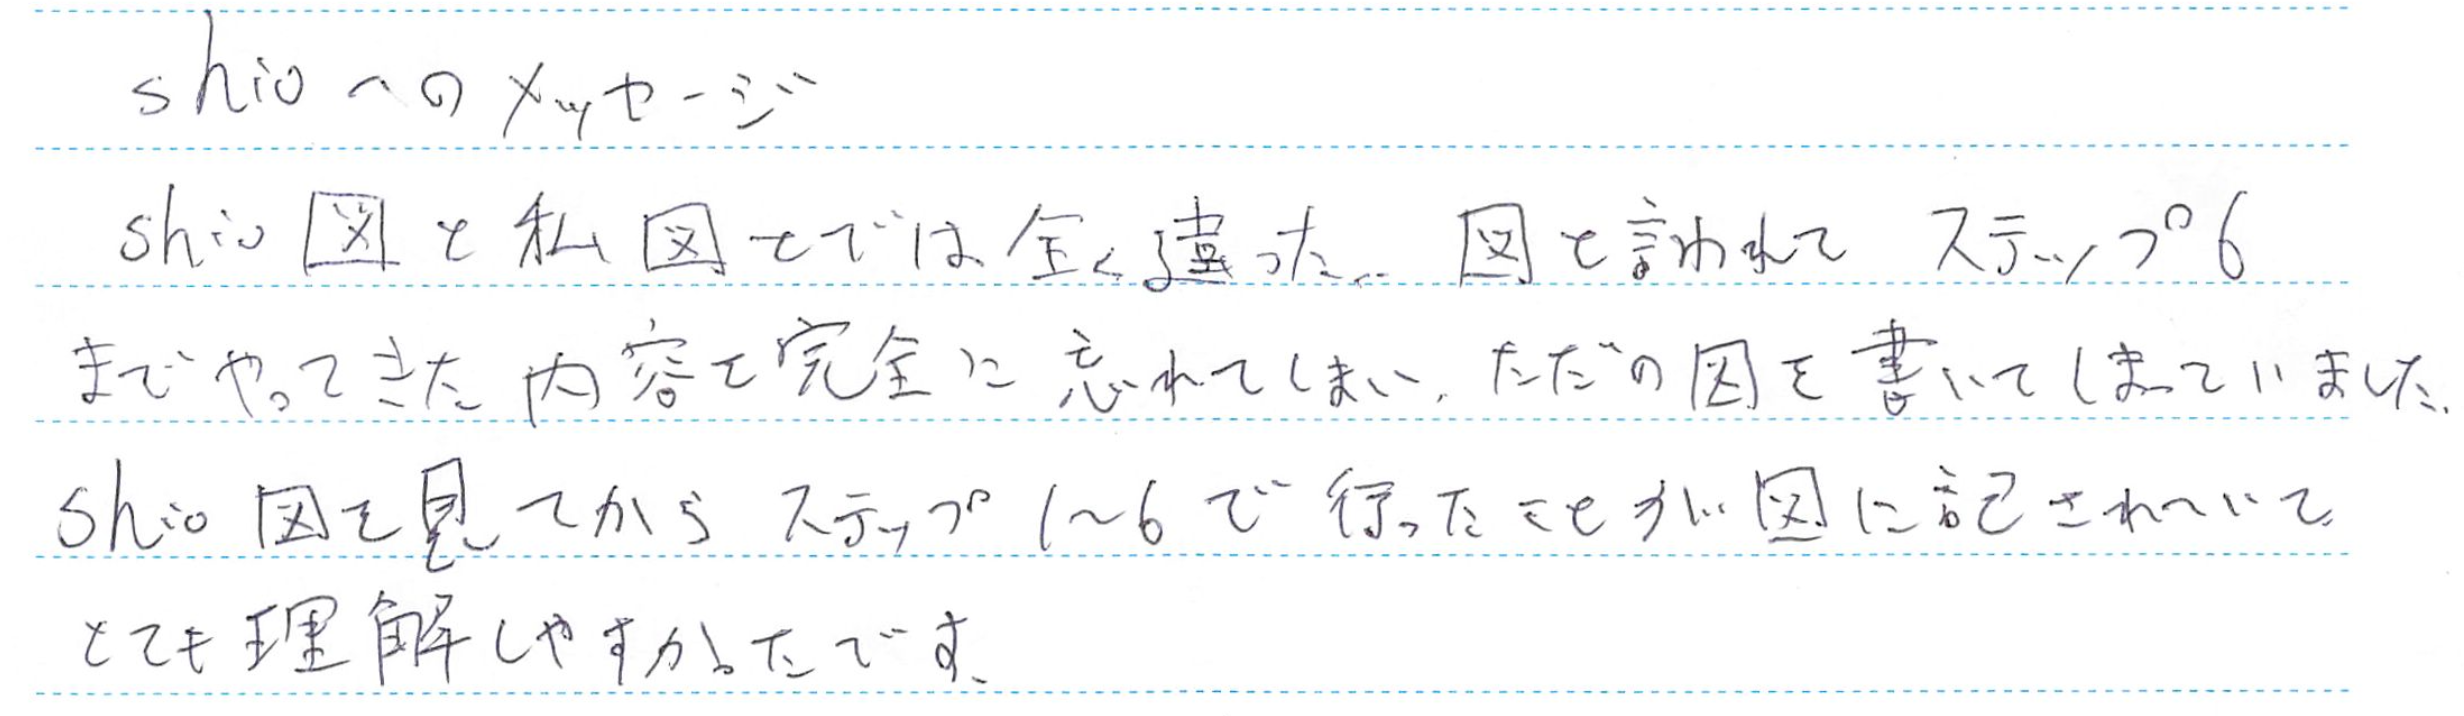 shioへのメッセージ
shio図と私図とでは全く違った。図と言われてステップ6
までやってきた内容を完全に忘れてしまい、ただの図を書いてしまっていました。
shio図を見てからステップ1〜6で行ったことが図に記されていて
とても理解しやすかったです。